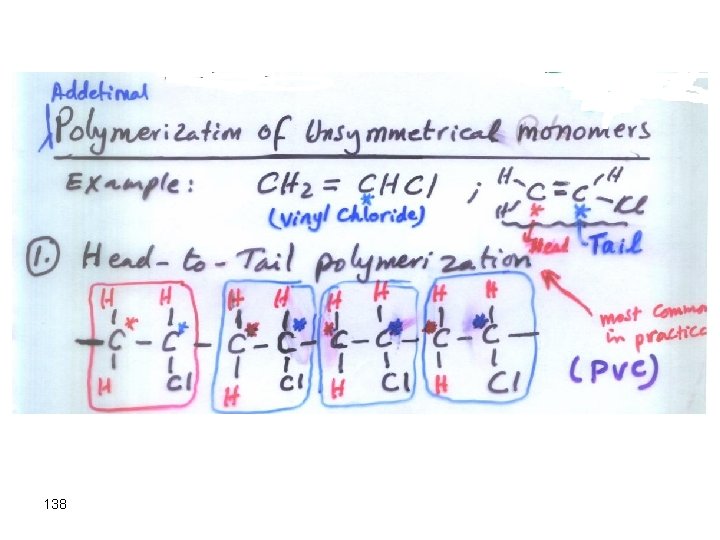 Addetimal
Polymerization of Unsymmetrical monomers
Example: CH2 = CHCl ; H H C=C H Cl
* (Vinyl Chloride) * * Head Tail
1. Head-to-Tail polymerization
most common
in practice
H H H H H H H H
* * * * * * * *
-C-C-C-C-C-C-C-C-
H Cl H Cl H Cl H Cl
(PVC)
138